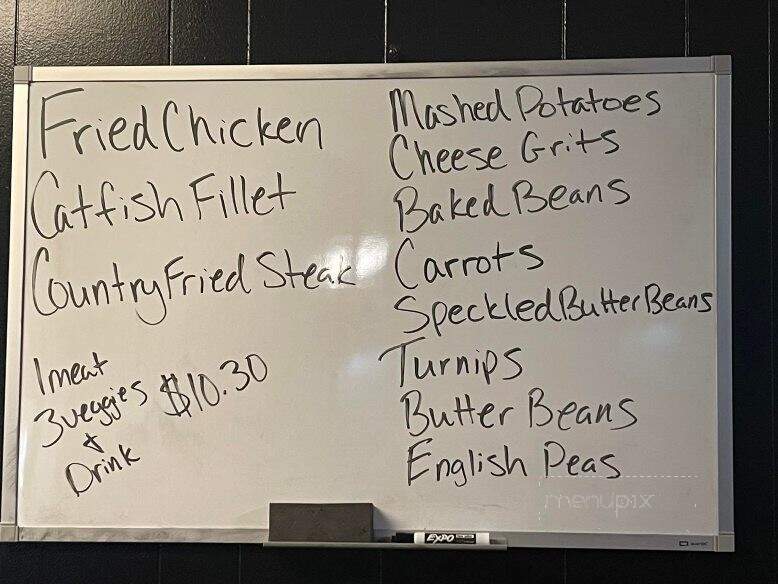 Fried Chicken
Catfish Fillet
Country Fried Steak
1 meat
3 veggies
&
Drink
$10.30
Mashed Potatoes
Cheese Grits
Baked Beans
Carrots
Speckled Butter Beans
Turnips
Butter Beans
English Peas
menupix
EXPO